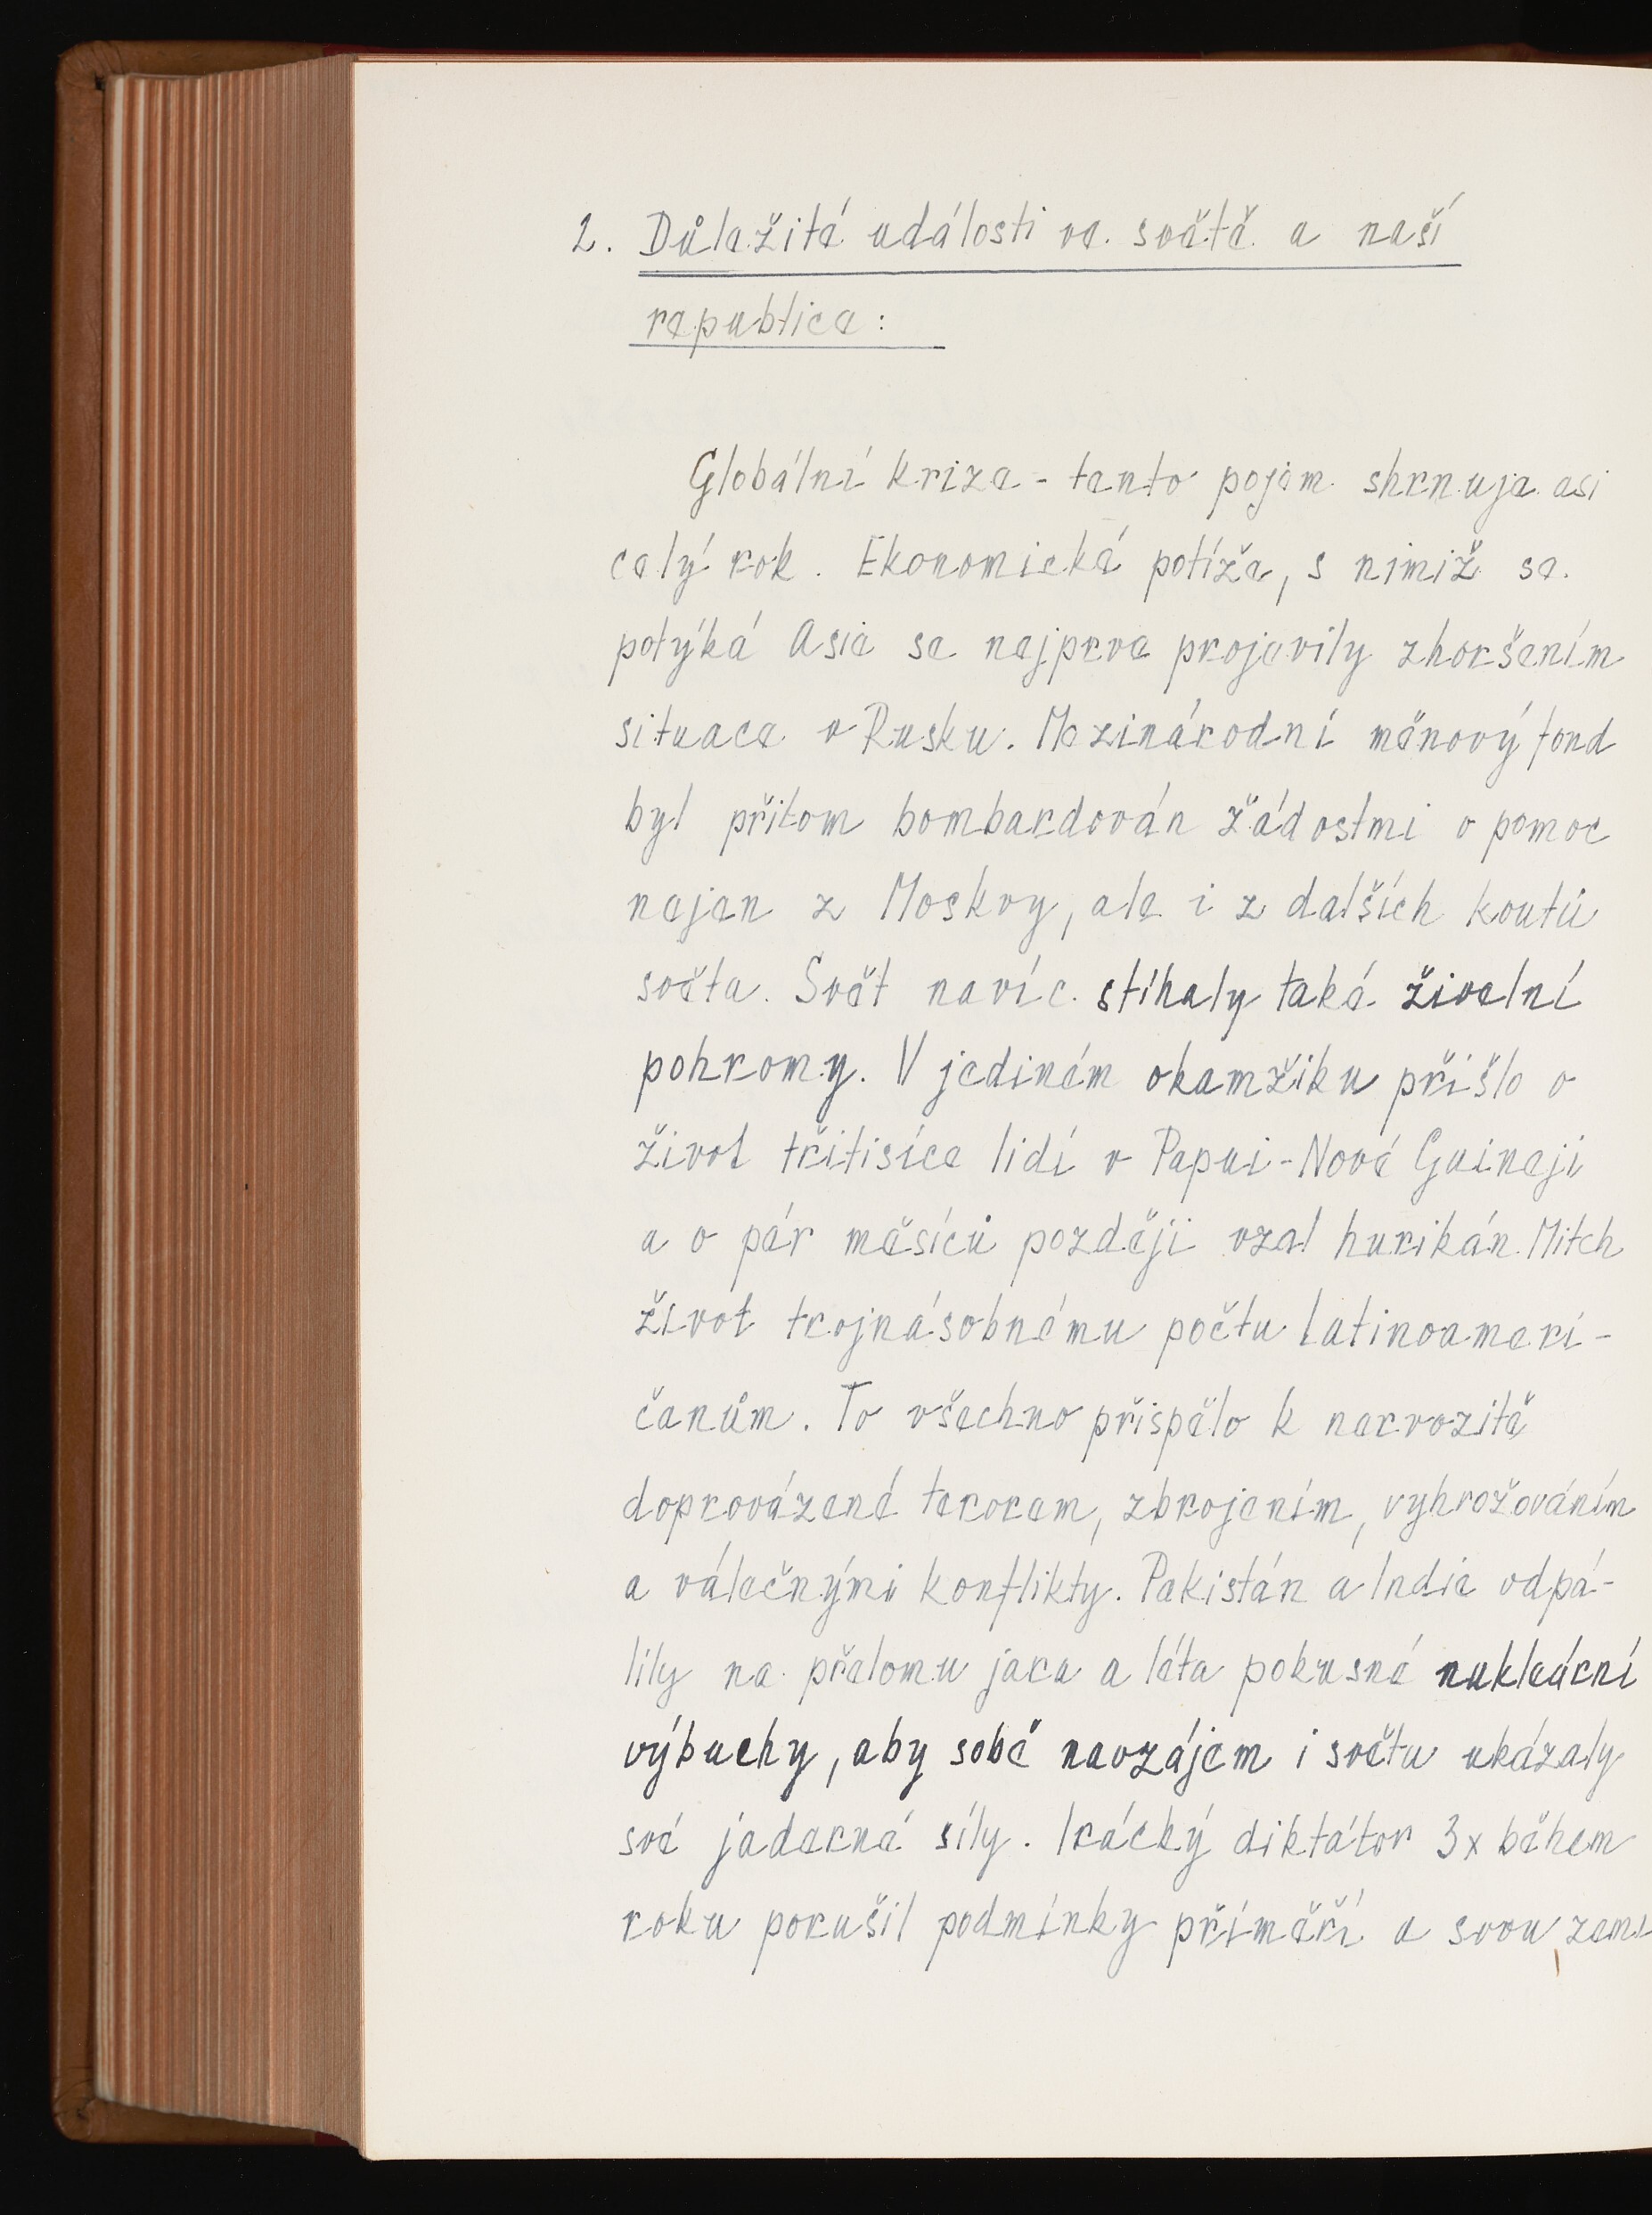 2. Důležité události ve světě a naší
republice:
Globální krize - tento pojem shrnuje asi
celý rok. Ekonomické potíže, s nimiž se
potýká Asie se nejprve projevily zhoršením
situace v Rusku. Mezinárodní měnový fond
byl přitom bombardován žádostmi o pomoc
nejen z Moskvy, ale i z dalších koutů
světa. Svět navíc stíhaly také živelní
pohromy. V jediném okamžiku přišlo o
život třitisíce lidí v Papui-Nové Guineji
a o pár měsíců později vzal hurikán Mitch
život trojnásobnému počtu latinoameri-
čanům. To všechno přispělo k nervozitě
doprovázené terorem, zbrojením, vyhrožováním
a válečnými konflikty. Pakistán a Indie odpá-
lily na přelomu jara a léta pokusné nukleární
výbuchy, aby sobě navzájem i světu ukázaly
své jaderné síly. Irácký diktátor 3x během
roku porušil podmínky příměří a svou zemi